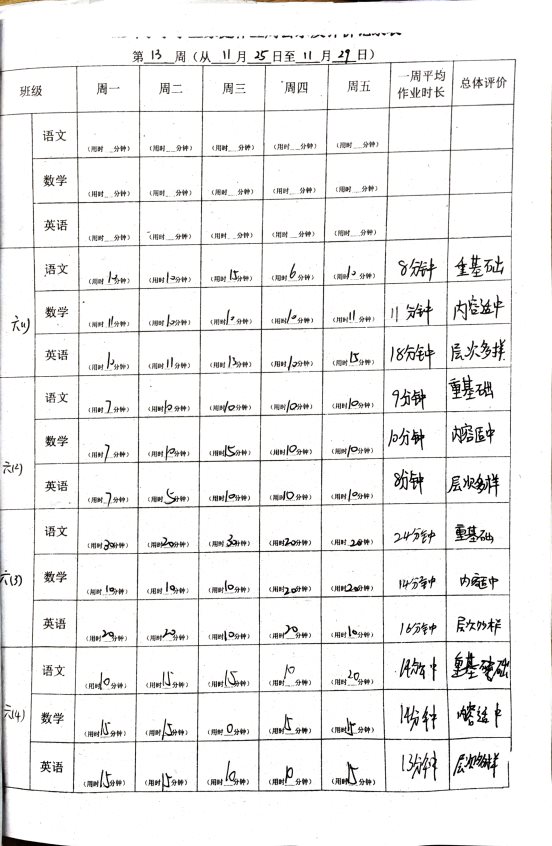 第 13 周（从 11 月 25 日至 11 月 29 日）
班级 周一 周二 周三 周四 周五 一周平均作业时长 总体评价
语文 （用时__分钟） （用时__分钟） （用时__分钟） （用时__分钟） （用时__分钟）
数学 （用时__分钟） （用时__分钟） （用时__分钟） （用时__分钟） （用时__分钟）
英语 （用时__分钟） （用时__分钟） （用时__分钟） （用时__分钟） （用时__分钟）
语文 （用时10分钟） （用时10分钟） （用时15分钟） （用时6分钟） （用时10分钟） 8分钟 重基础
六(1) 数学 （用时11分钟） （用时10分钟） （用时10分钟） （用时10分钟） （用时11分钟） 11分钟 内容适中
英语 （用时10分钟） （用时11分钟） （用时13分钟） （用时10分钟） （用时15分钟） 18分钟 层次多样
语文 （用时7分钟） （用时10分钟） （用时10分钟） （用时10分钟） （用时10分钟） 9分钟 重基础
六(2) 数学 （用时7分钟） （用时10分钟） （用时15分钟） （用时10分钟） （用时10分钟） 10分钟 内容适中
英语 （用时7分钟） （用时5分钟） （用时10分钟） （用时10分钟） （用时10分钟） 8分钟 层次多样
语文 （用时30分钟） （用时20分钟） （用时30分钟） （用时20分钟） （用时20分钟） 24分钟 重基础
六(3) 数学 （用时10分钟） （用时10分钟） （用时10分钟） （用时20分钟） （用时20分钟） 14分钟 内容适中
英语 （用时20分钟） （用时20分钟） （用时10分钟） （用时20分钟） （用时10分钟） 16分钟 层次多样
语文 （用时10分钟） （用时15分钟） （用时15分钟） （用时10分钟） （用时20分钟） 14分钟 重基础
六(4) 数学 （用时15分钟） （用时15分钟） （用时0分钟） （用时15分钟） （用时15分钟） 14分钟 内容适中
英语 （用时15分钟） （用时15分钟） （用时10分钟） （用时10分钟） （用时15分钟） 13分钟 层次多样